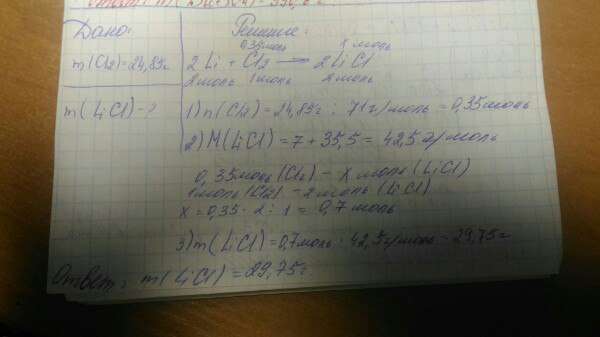 Дано:
Решение:
0,35моль
x моль
m(Cl2)=24,85г
2Li + Cl2 → 2LiCl
2моль 1моль 2моль
m(LiCl)-?
1) n(Cl2)=24,85г : 71г/моль = 0,35моль
2) M(LiCl) = 7 + 35,5 = 42,5 г/моль
0,35моль(Cl2) - x моль (LiCl)
1моль (Cl2) - 2моль (LiCl)
x = 0,35 · 2 : 1 = 0,7 моль
3) m(LiCl)=0,7моль · 42,5г/моль = 29,75г
Ответ: m(LiCl) = 29,75г.